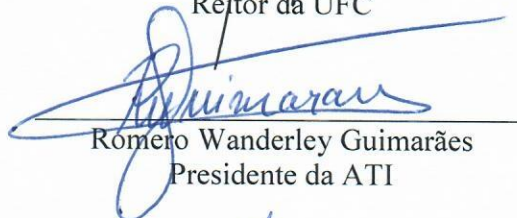 Reitor da UFC
Guimaraes
Romero Wanderley Guimarães
Presidente da ATI